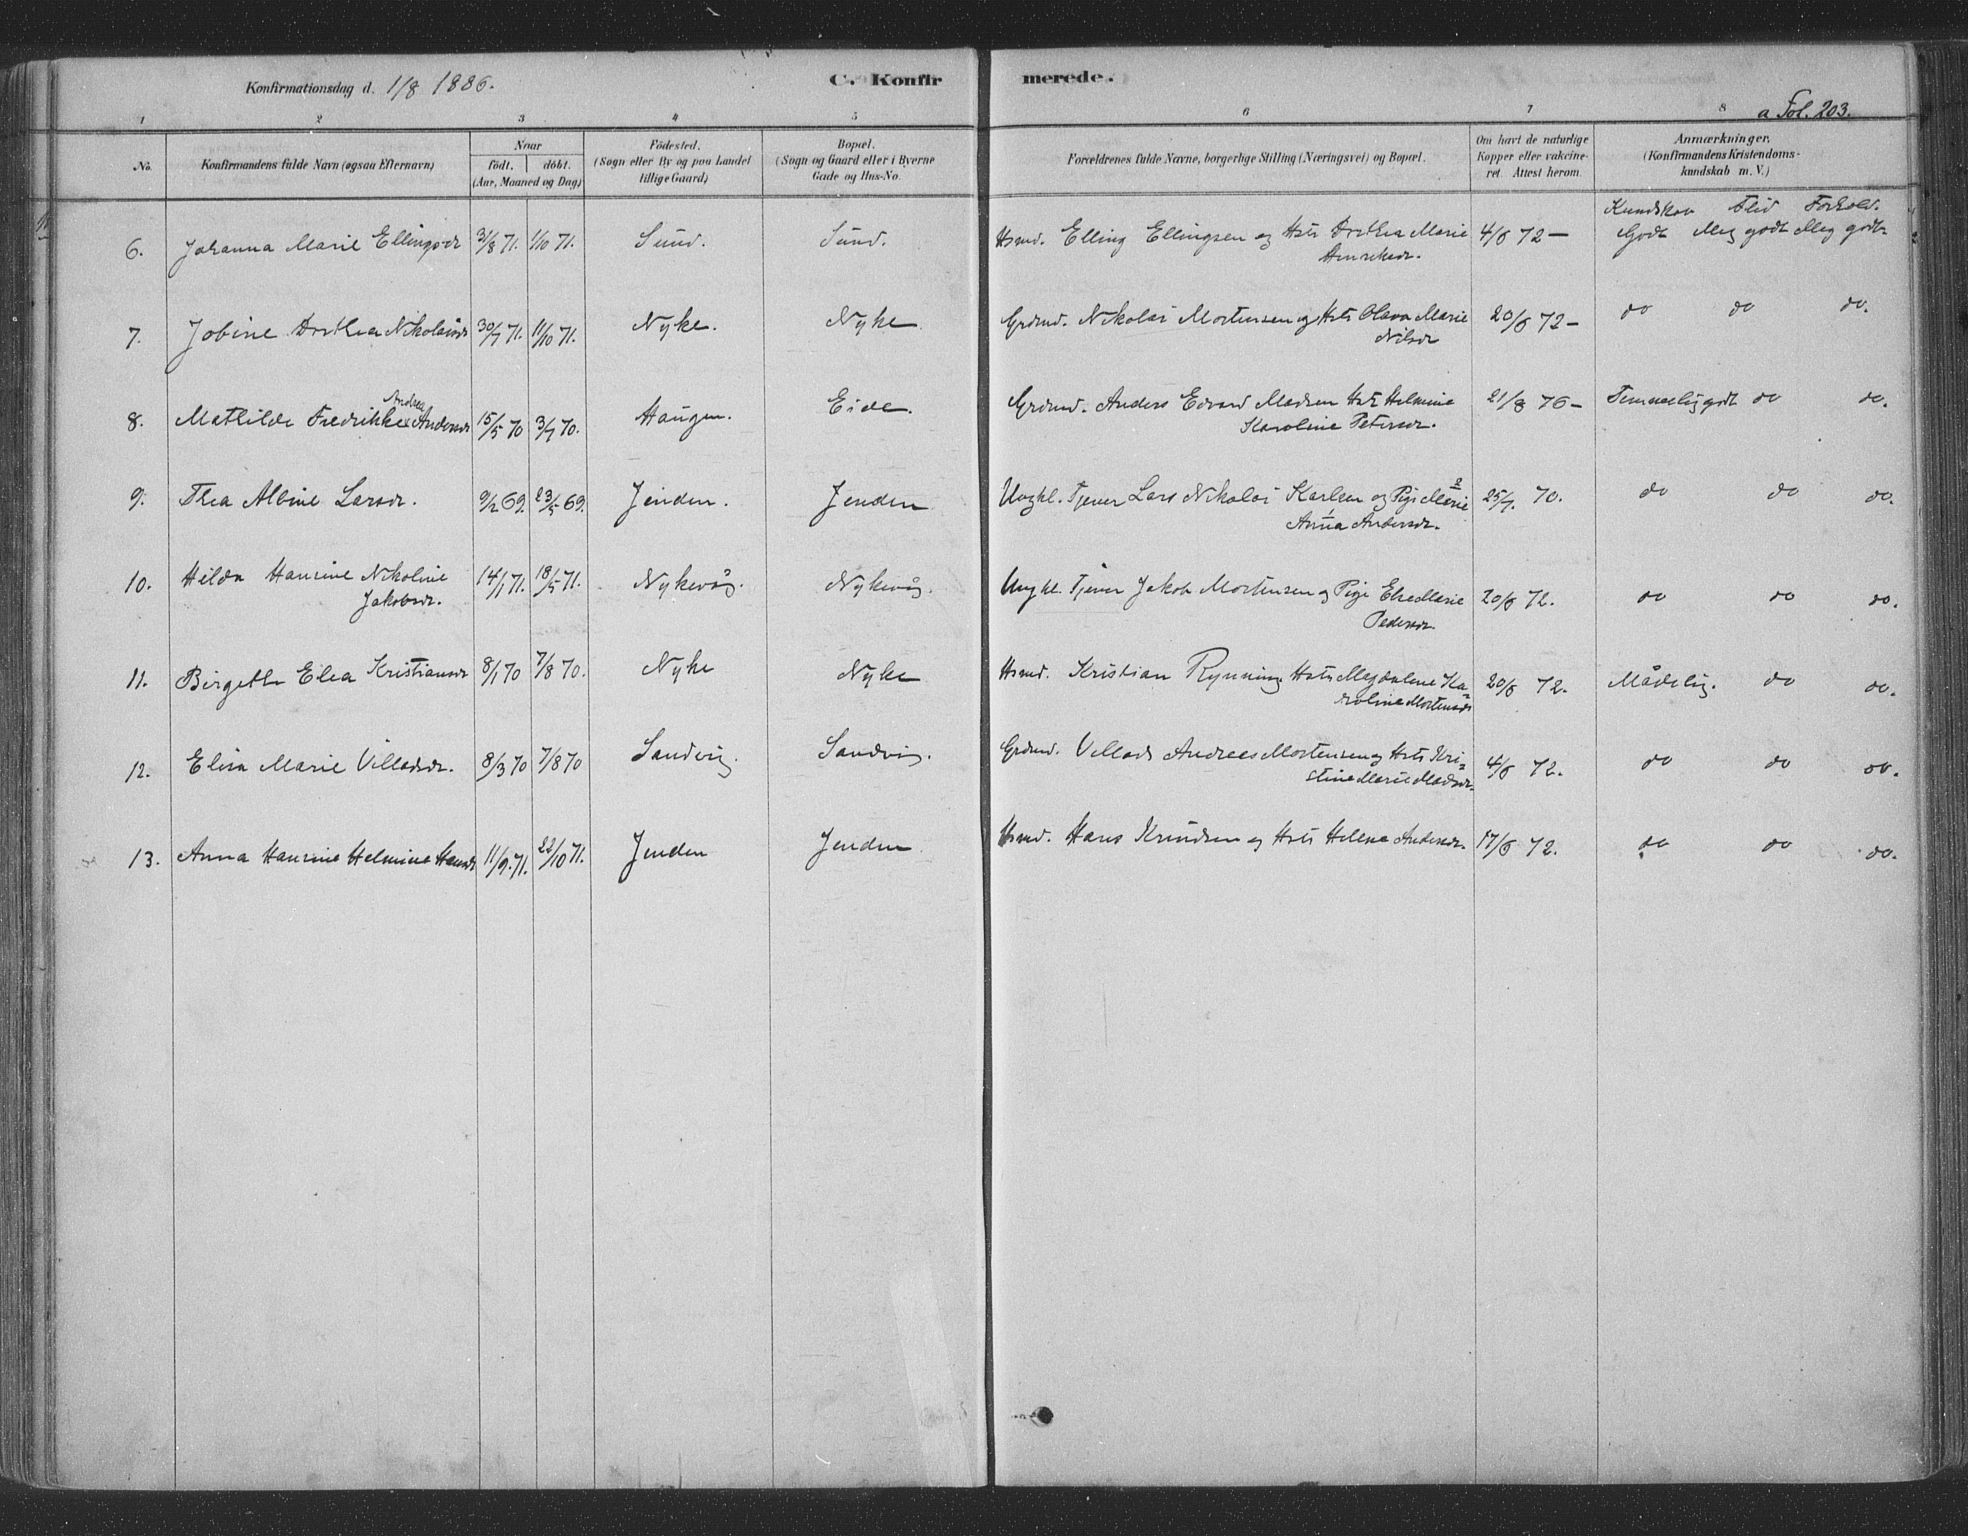 Konfirmationsdag d. 1/8 1886.
C. Konfir
merede.
a Fol. 203.
1 2 3 4 5 6 7 8
No.
Konfirmandens fulde Navn (ogsaa Efternavn)
Naar
födt. döbt.
(Aar, Maaned og Dag)
Födested.
(Sogn eller By og paa Landet
tillige Gaard)
Bopæl.
(Sogn og Gaard eller i Byerne
Gade og Hus-No.
Forældrenes fulde Navne, borgerlige Stilling (Næringsvei) og Bopæl.
Om havt de naturlige
Kopper eller vakcine-
ret. Attest herom.
Anmærkninger.
(Konfirmandens Kristendoms-
kundskab m. V.)
Kundskab Flid Forhold.
6. Johanna Marie Ellingsdr 3/8 71. 1/10 71. Sund. Sund. Hsmd. Elling Ellingsen og Hstr Dorthea Marie 4/6 72 — Godt Meg godt Meg godt
Henriksdr.
7. Jobine Dorthea Nikolaisdr 30/7 71. 11/10 71. Nyke. Nyke Grdmd. Nikolai Mortensen og Hstr Olava Marie 20/6 72 – do do do.
Nilsdr
Andrea
8. Mathilde Fredrikke Andersdr 15/5 70 3/7 70. Haugen. Eide. Grdmd. Anders Edvard Madsen Hstr Helmine 21/8 76 – Temmelig godt do do.
Karoline Petersdr.
9. Thea Albine Larsdr. 9/2 69. 23/5 69. Jenden. Jenden Ungkl. Tjener Lars Nikolai Karlsen og Pige Marie 25/7 70. do do do.
Anna Andersdr.
10. Hilda Hansine Nikoline 14/1 71. 18/5 71. Nykevåg. Nykevåg. Ungkl. Tjener Jakob Mortensen og Pige Else Marie 20/6 72. do do do.
Jakobsdr.
Pedersdr.
11. Birgette Elea Kristiansdr 8/1 70 7/8 70. Nyke Nyke Hsmd. Kristian Rynning Hstr Magdalene Ka= 20/6 72. Mådelig. do do.
roline Mortensdr
12. Elisa Marie Villadsdr. 8/3 70 7/8 70 Sandvig. Sandvig. Grdmd. Villads Andreas Mortensen og Hstr Kri= 4/6 72. do do do.
stine Marie Madsdr.
13. Anna Hansine Helmine Hansdr 11/9. 71. 22/10 71. Jenden Jenden Hsmd. Hans Knudsen og Hstr Helena Andersdr. 17/6 72. do do do.